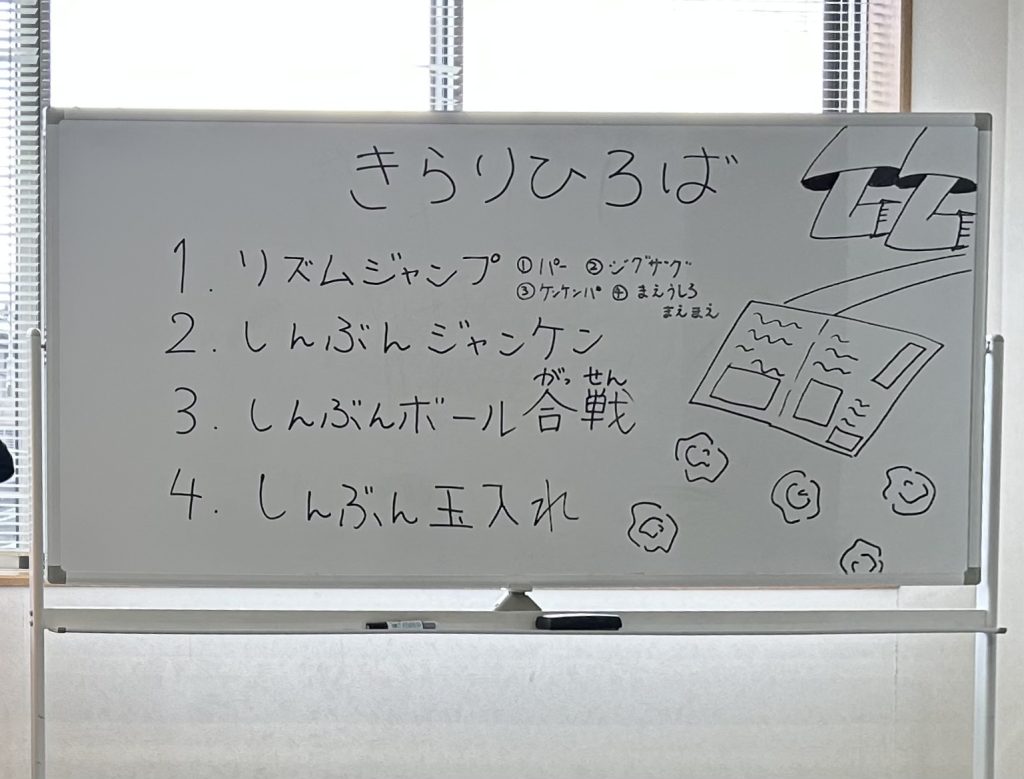 きらりひろば
1. リズムジャンプ ①パー ②ジグザグ
③ケンケンパ ④まえうしろ
まえまえ
2. しんぶんジャンケン
3. しんぶんボール合戦
がっせん
4. しんぶん玉入れ